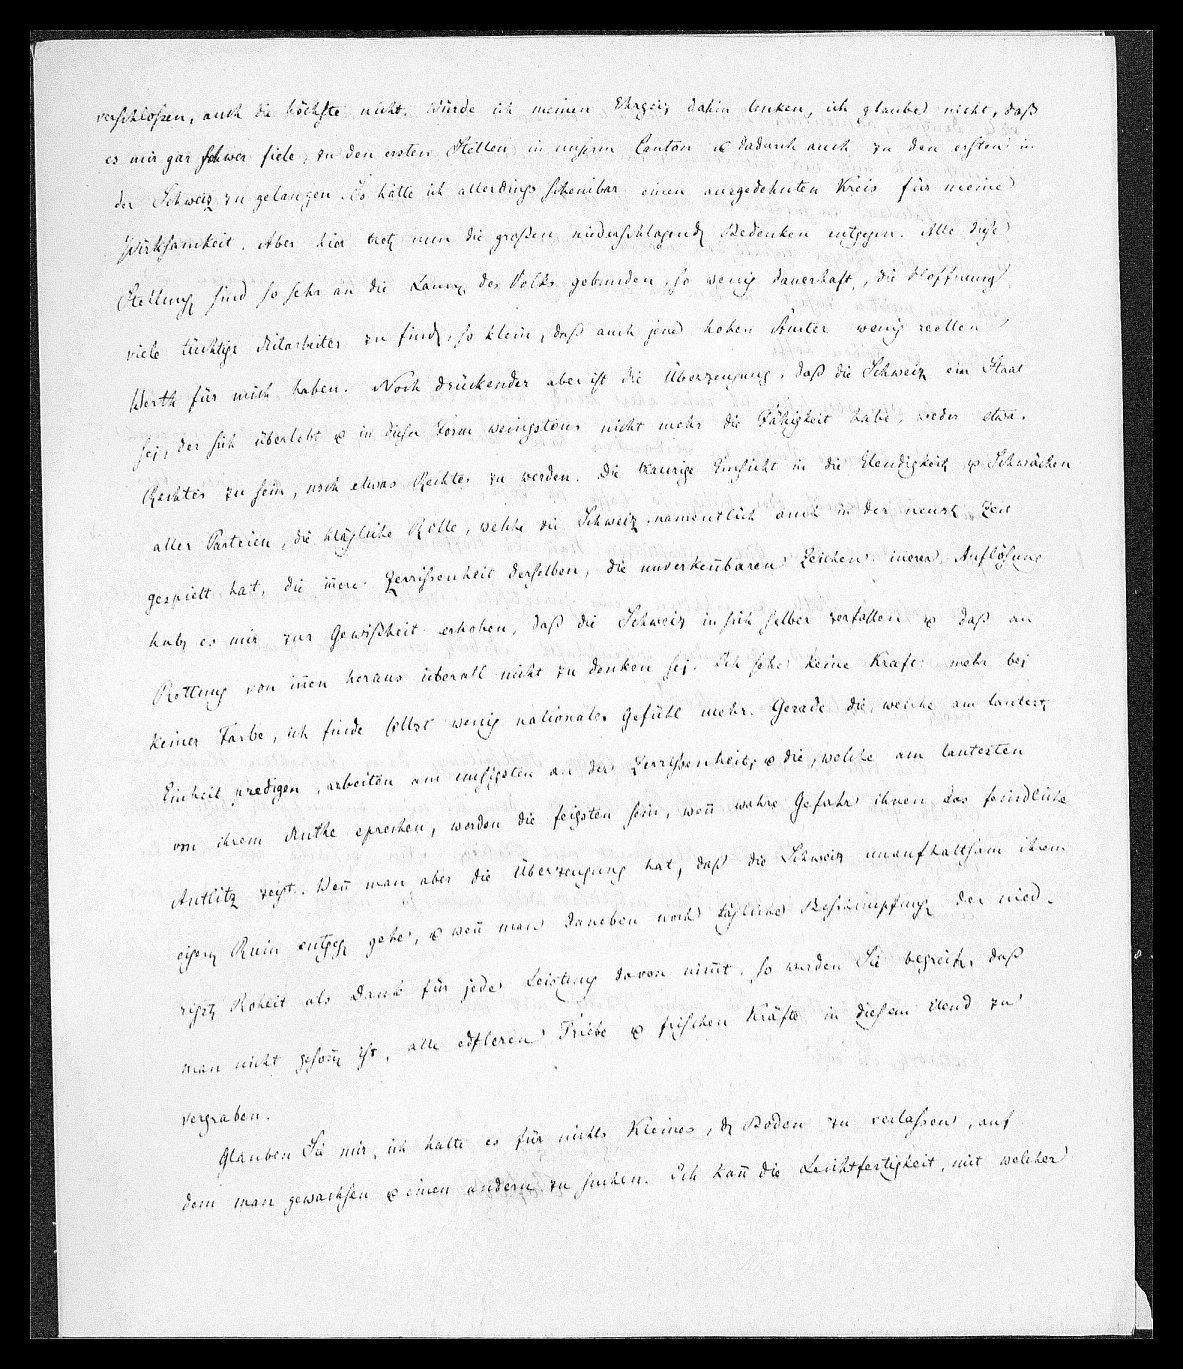 verschlossen, auch die höchste nicht. Würde ich meinen Ehrgeiz dahin lenken, ich glaube nicht, daß
es mir gar schwer fiele, zu den ersten Stellen in unserm Canton & dadurch auch zu den ersten in
der Schweiz zu gelangen. Es hätte ich allerdings scheinbar einen ausgedehnten Kreis für meine
Wirksamkeit. Aber hier tretg nun die großen niederschlagendg Bedenken entgegen. Alle diese
Stellung sind so sehr an die Laung des Volks gebunden, so wenig dauerhaft, die Hoffnung
viele tüchtige Mitarbeiter zu findg, so klein, daß auch jene hohen Ämter wenig reellen
Werth für mich haben. Noch drückender aber ist die Überzeugung, daß die Schweiz ein Staat
sej, der sich überlebt & in dieser Form wenigstens nicht mehr die Fähigkeit habe, weder etwas
Rechtes zu sein, noch etwas Rechtes zu werden. Die traurige Einsicht in die Elendigkeit & Schwächen
aller Parteien, die klägliche Rolle, welche die Schweiz namentlich auch in der neustg Zeit
gespielt hat, die iñere Zerrissenheit derselben, die unverkeñbaren Zeichen inerer Auflösung
habg es mir zur Gewißheit erhoben, daß die Schweiz in sich selber zerfallen & daß an
Rettung von iñen heraus überall nicht zu denken sej. Ich sehe keine Kraft mehr bej
keiner Farbe, ich finde selbst wenig nationales Gefühl mehr. Gerade die, welche am lautestg
Einheit predigen, arbeiten am emsigsten an der Zerrissenheit, & die, welche am lautesten
von ihrem Muthe sprechen, werden die feigsten sein, weñ wahre Gefahr ihnen das feindliche
Antlitz zeigt. Weñ man aber die Überzeugung hat, daß die Schweiz unaufhaltsam ihrem
eigeng Ruin entgeg gehe, & weñ man daneben noch tägliche Beschimpfung der nied-
rigstg Roheit als Dank für jede Leistung davon nim̃t, so werden Sie begreifg, daß
man nicht gesoñ ist, alle edleren Triebe & frischen Kräfte in diesem Elend zu
vergraben.
Glauben Sie mir, ich halte es für nichts Kleines, dg Boden zu verlassen, auf
dem man gewachsen & einen andern zu suchen. Ich kañ die Leichtfertigkeit, mit welcher